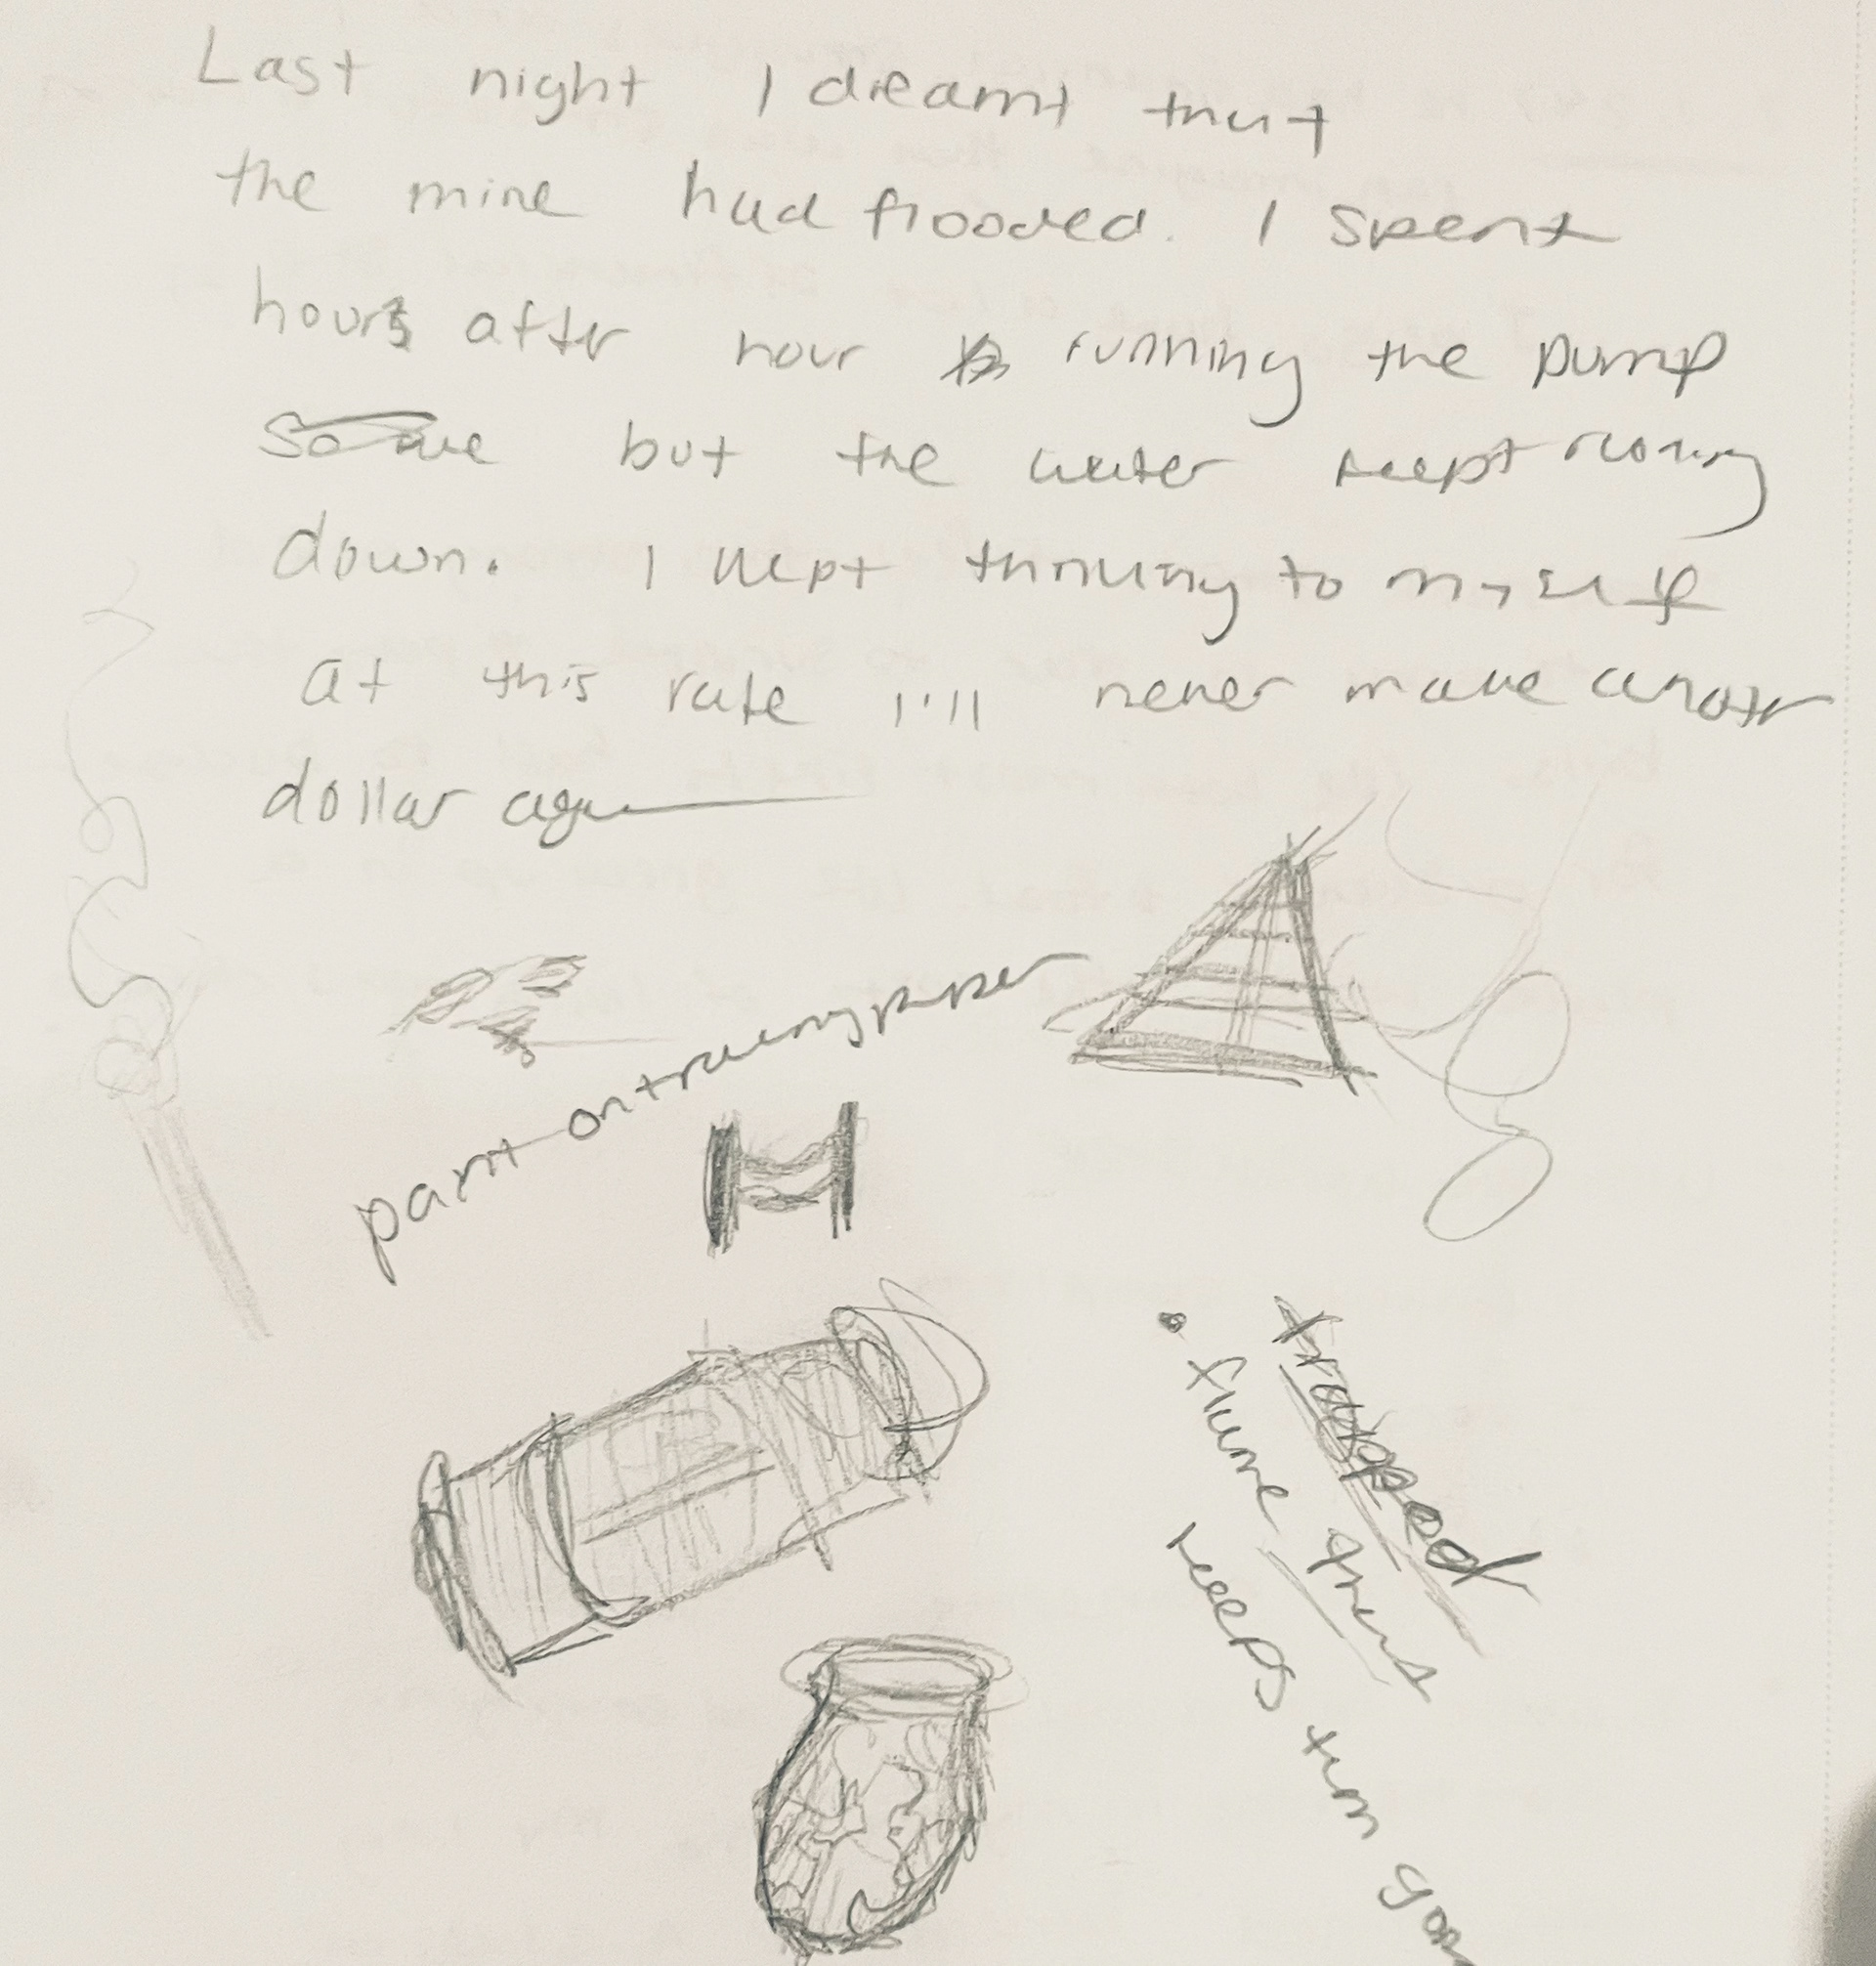 Last night I dreamt that
the mine had flooded. I spent
hours after hour running the pump
but the water kept running
down. I kept thinking to myself
at this rate I'll never make another
dollar aga
paint on tracing paper
trapped
• flume
keeps him going